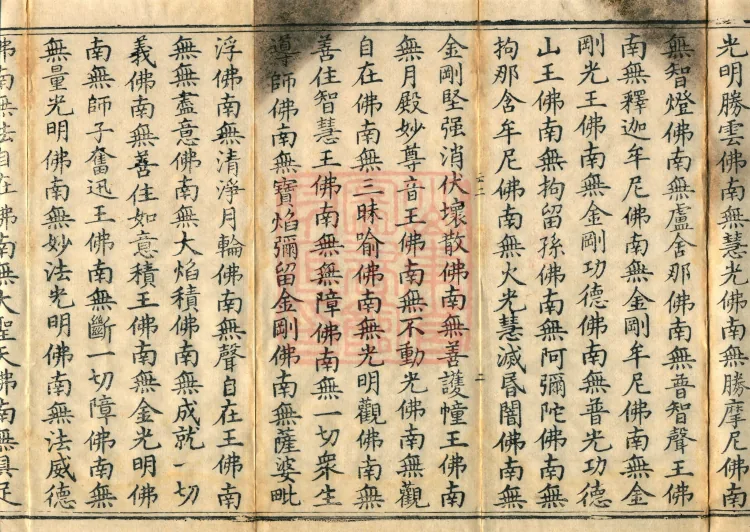 光明勝雲佛南無慧光佛南無勝摩尼佛南
無智燈佛南無盧舍那佛南無普智聲王佛
南無釋迦牟尼佛南無金剛牟尼佛南無金
剛光王佛南無金剛功德佛南無普光功德
山王佛南無拘留孫佛南無阿彌陀佛南無
拘那含牟尼佛南無火光慧滅昏闇佛南無
金剛堅强消伏壞散佛南無善護幢王佛南
無月殿妙尊音王佛南無不動光佛南無觀
自在佛南無三昧喻佛南無光明觀佛南無
善住智慧王佛南無無障佛南無一切衆生
導師佛南無寶焰彌留金剛佛南無薩婆毗
浮佛南無清淨月輪佛南無聲自在王佛南
無無盡意佛南無大焰積佛南無成就一切
義佛南無善住如意積王佛南無金光明佛
南無師子奮迅王佛南無斷一切障佛南無
無量光明佛南無妙法光明佛南無法威德
佛南無法自在佛南無大聖天佛南無具足